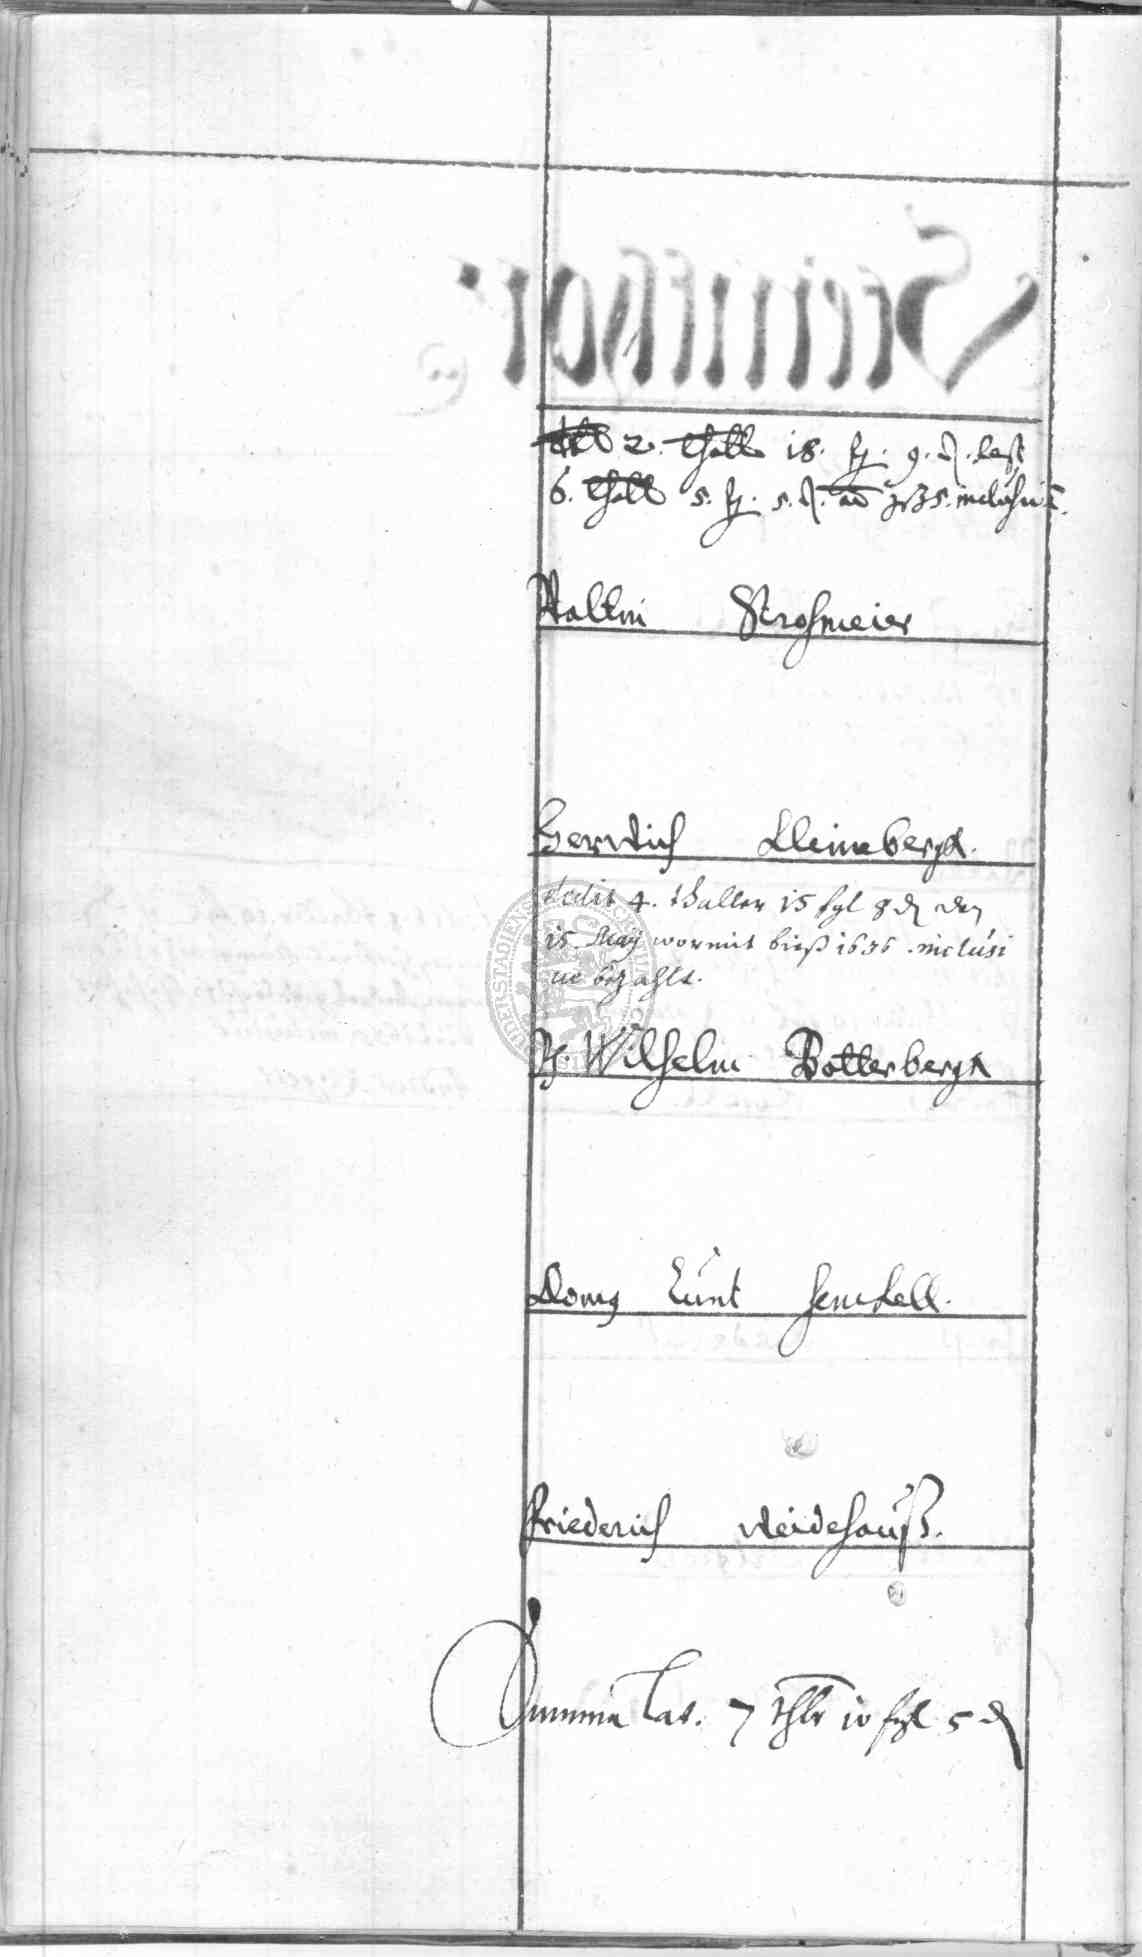 2. thall 18. ßg. 9. d. Rest
6. thall 5. ßg. 5. d. ad 1635. inclusiue.
Valtin Strohmeier
Herwich Kleineberg.
dedit 4. thaller 15 sgl 8 d den
15. May wormit bieß 1636. inclusi
ue bezahlt.
H. Wilhelm Botterberg
Cunt Henckell.
Friederich Neidehauß.
Summa Lat. 7 thlr 10 sgl 5 d